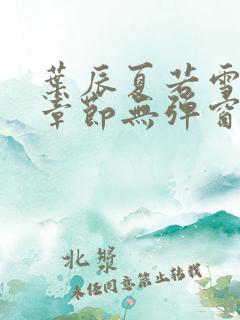 葉辰夏若雪
章節無彈窗
北槳
未經同意禁止轉載